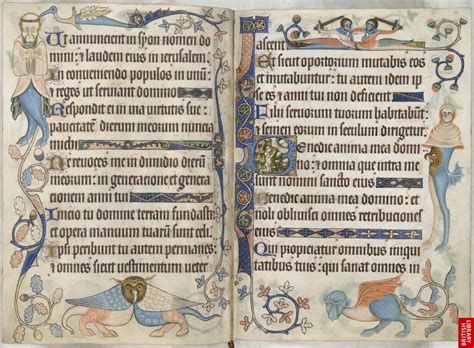 Ut annuncient in syon nomen do
mini: et laudem eius in ierusalem.
In conveniendo populos in unum:
et reges ut serviant domino
Respondit ei in via virtutis sue:
paucitatem dierum meorum nuncia
michi
Ne revoces me in dimidio dierum
meorum: in generacionem et genera
anni tui
Inicio tu domine terram fundasti:
et opera manuum tuarum sunt celi
Ipsi peribunt tu autem permanes:
et omnes sicut vestimentum veter
ascent
Et sicut opertorium mutabis eos
et mutabuntur: tu autem idem ipse
es et anni tui non deficient
Filii servorum tuorum habitabunt:
et semen eorum in seculum dirigetur
Benedic anima mea domi
no: et omnia que intra me
sunt nomini sancto eius
Benedic anima mea domino: et
noli oblivisci omnes retribuciones
eius
Qui propiciatur omnibus iniqui
tatibus tuis: qui sanat omnes in
BRITISH
LIBRARY